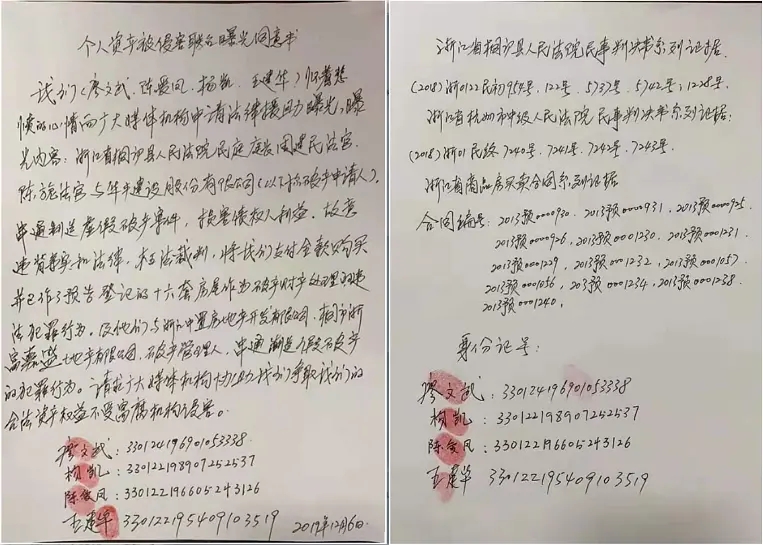 个人资产被侵害联合曝光同意书
我们（廖文武、陈爱凤、杨凯、王建华）怀着悲
愤的心情向广大媒体机构申请法律援助曝光，曝
光内容：浙江省桐庐县人民法院民庭庭长周建民法官、
陈旎法官与华丰建设股份有限公司（以下称破产申请人）、
串通制造虚假破产事件，损害债权人利益，故意
违背事实和法律，枉法裁判，将我们支付全款购买
并已作了预告登记的十六套房屋作为破产财产处理的违
法犯罪行为。及他们与浙江中置房地产开发有限公司、桐庐浙
富嘉盛地产有限公司、破产管理人，串通制造假破产
的犯罪行为。请求广大媒体机构协助我们争取我们的
合法资产权益不受腐败机构侵害。
廖文武：330124196901053338
杨凯：330122198907252537
陈爱凤：330122196605243126
王建华 330122195409103519 2019年12月6日
浙江省桐庐县人民法院民事判决书系列证据：
（2018）浙0122民初954号、122号、5737号、5742号；1228号、
浙江省杭州市中级人民法院 民事判决书系列证据：
（2018）浙01民终7240号、7241号、7242号、7243号、
浙江省商品房买卖合同系列证据
合同编号：2013预0000930、2013预0000931、2013预0000925、
2013预0000926、2013预0001230、2013预0001231、
2013预0001229、2013预0001232、2013预0001057、
2013预0001056、2013预0001234、2013预0001238、
2013预0001240、
身份证号：
廖文武：330124196901053338
杨凯：330122198907252537
陈爱凤：330122196605243126
王建华 330122195409103519